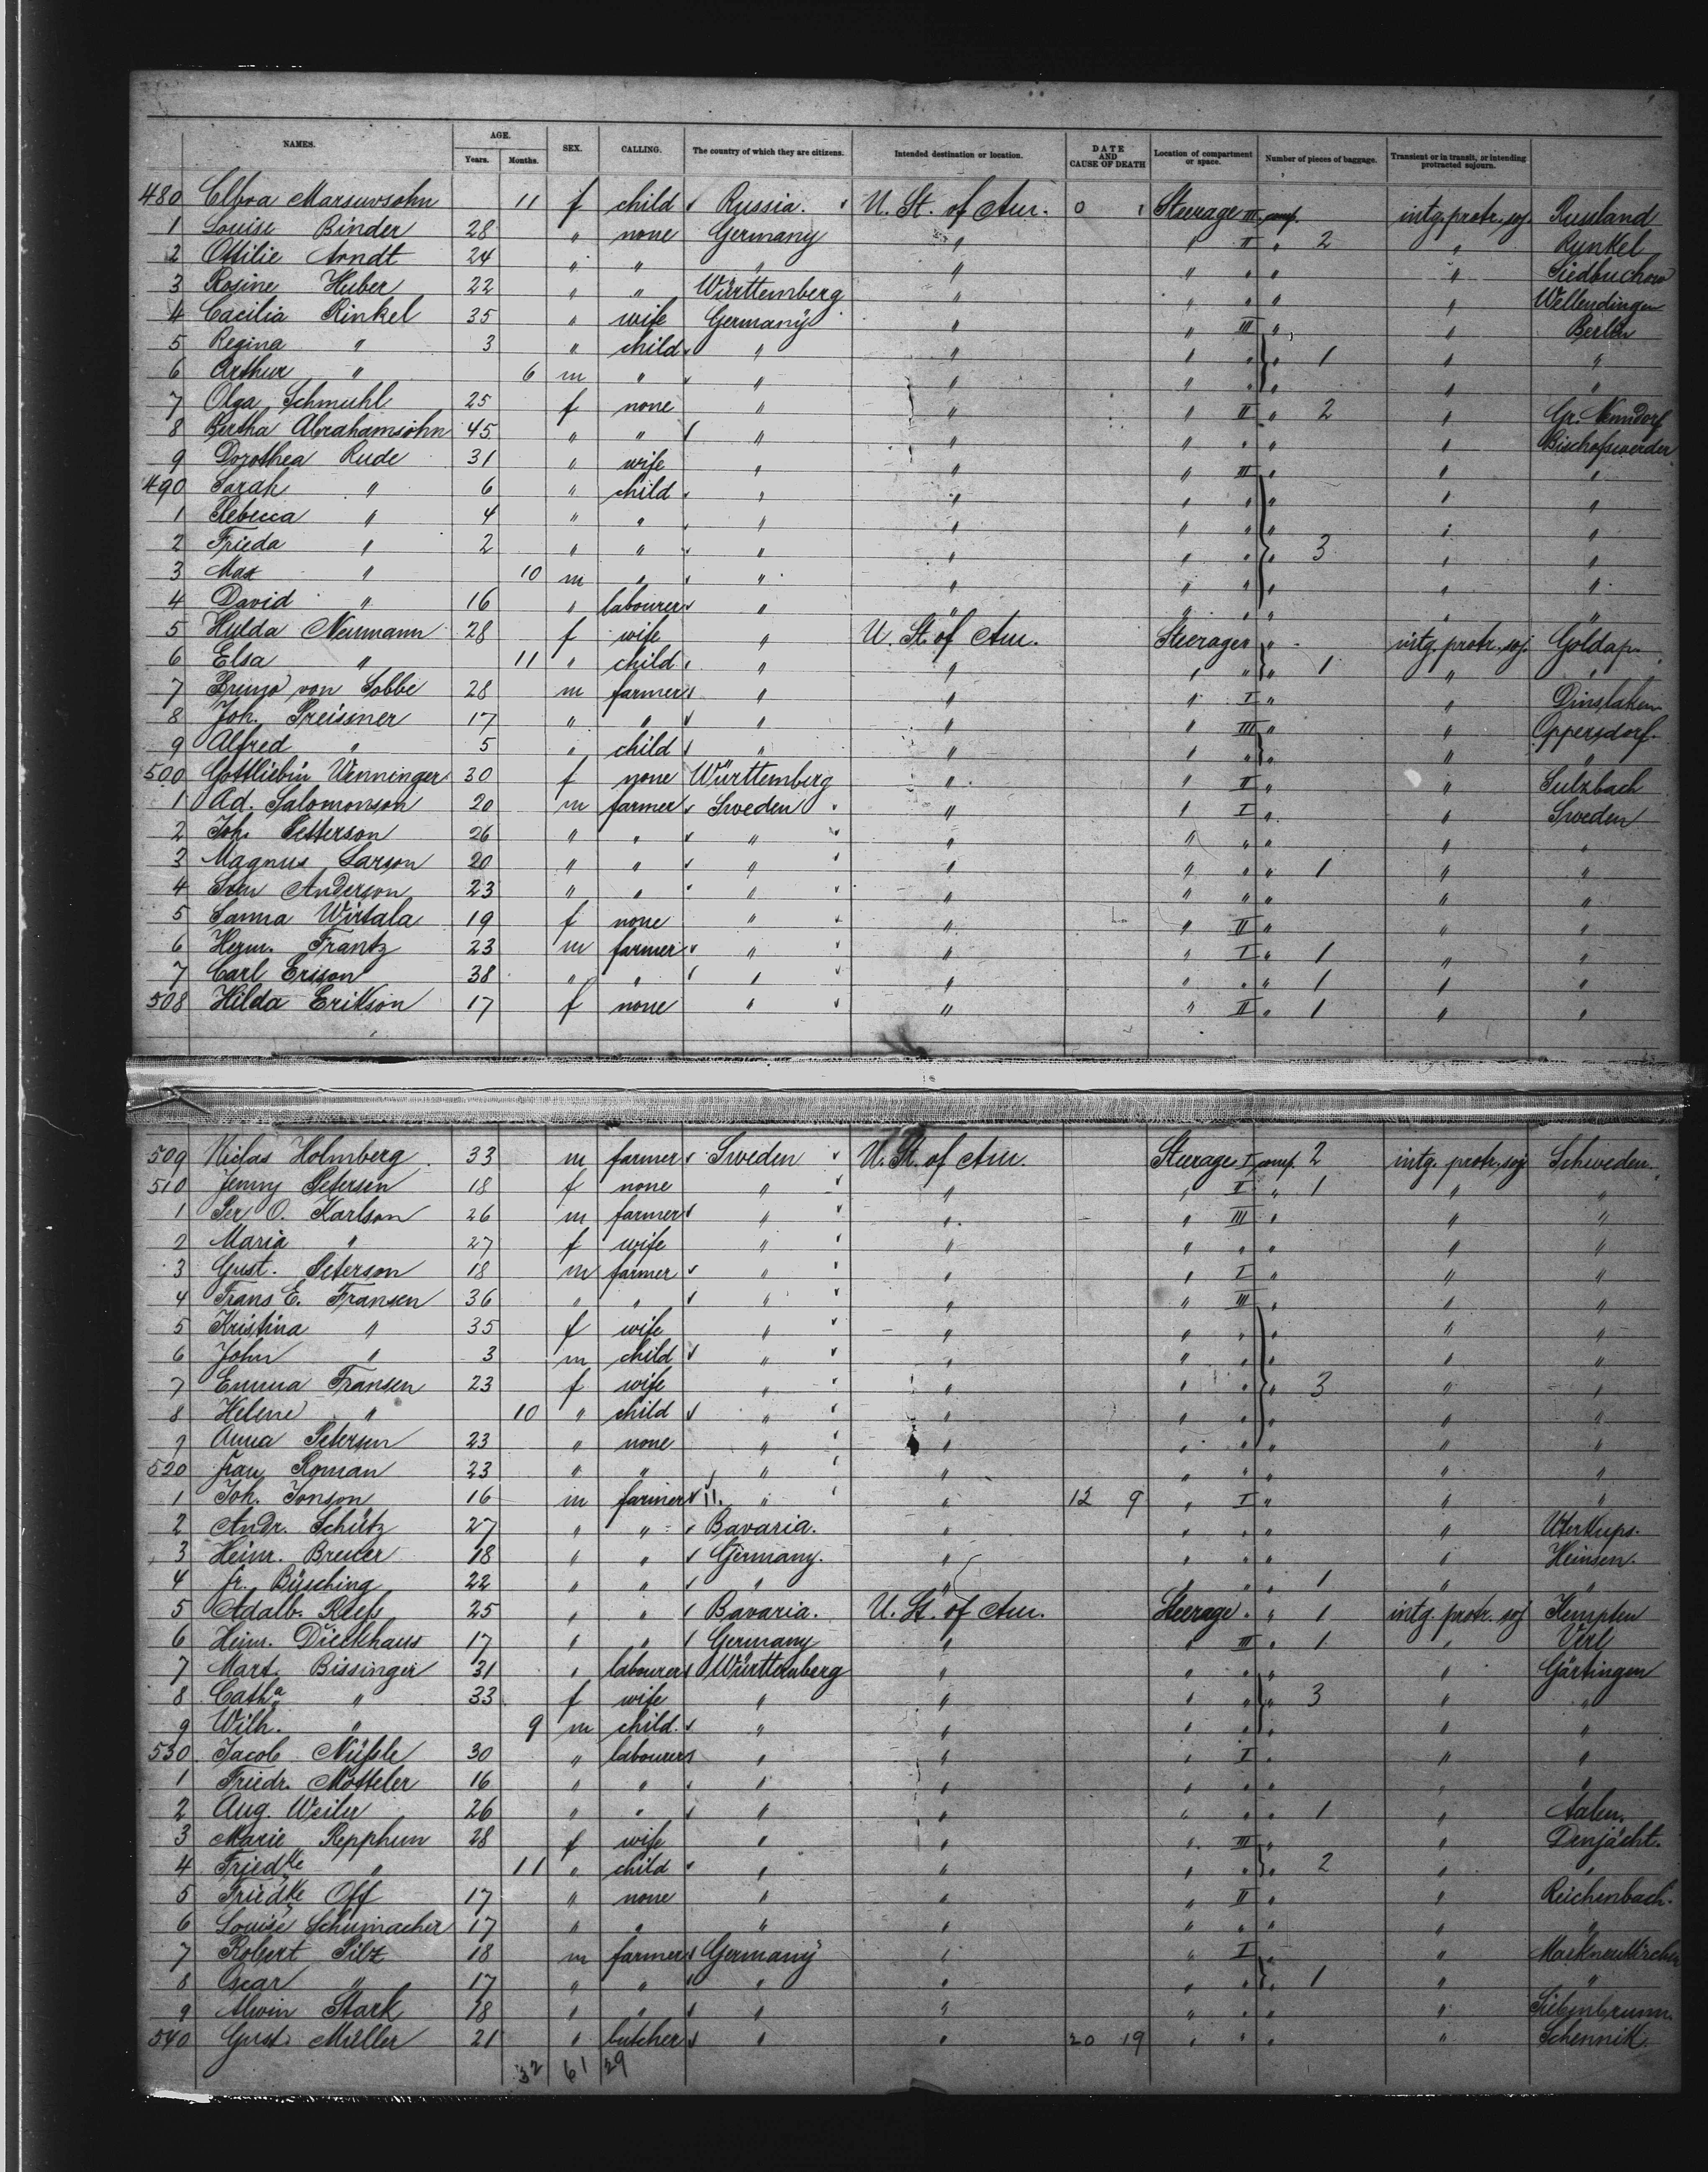 NAMES. AGE. Years. Months. SEX. CALLING. The country of which they are citizens. Intended destination or location. DATE AND CAUSE OF DEATH Location of compartment or space. Number of pieces of baggage. Transient or in transit, or intending protracted sojourn.
480 11 f child Russia. U. St. of Am. 0 Steerage III comp. intg. protr. soj. Russland
1 Louise Binder 28 " none Germany " " II " 2 " Rynkel
2 Ottilie Arndt 24 " " " " " " " "
3 Rosine Huber 22 " " Württemberg " " " " " Wellendingen
4 Cacilia Rinkel 35 " wife Germany " " III " " Berlin
5 Regina " 3 " child " " " " " 1 " "
6 Arthur " 6 m " " " " " " " "
7 Olga Schmuhl 25 f none " " " II " 2 "
8 Bertha Abrahamsohn 45 " " " " " " " " Bischofswerder
9 Dorothea Rude 31 " wife " " " III " " "
490 Sarah " 6 " child " " " " " " "
1 Rebecca " 4 " " " " " " " " "
2 Frieda " 2 " " " " " " " 3 " "
3 Max " 10 m " " " " " " " "
4 David " 16 " labourer " " " " " "
5 Hulda Neumann 28 f wife " U. St. of Am. Steerage " " intg. protr. soj. Goldap.
6 Elsa " 11 " child " " " " " 1 " "
7 Bruno von Sobbe 28 m farmer " " " I " " Dinslaken
8 Joh. Preissner 17 " " " " " III " " Oppersdorf.
9 Alfred " 5 " child " " " " " " "
500 Gottliebin Wenninger 30 f none Württemberg " " II " " Sulzbach
1 Ad. Salomonson 20 m farmer Sweden " " I " " Sweden
2 Joh. Petterson 26 " " " " " " " " "
3 Magnus Larson 20 " " " " " " " 1 " "
4 Sven Anderson 23 " " " " " " " " "
5 Sanna Wirtala 19 f none " " " II " " "
6 Herm. Frantz 23 m farmer " " " I " 1 " "
7 Carl Erison 38 " " " " " " " 1 " "
508 Hilda Erikson 17 f none " " " II " 1 " "
509 Niclas Holmberg 33 m farmer Sweden U. St. of Am. Steerage I comp. 2 intg. protr. soj. Schweden.
510 Jenny Peterson 18 f none " " " II " 1 " "
1 Per O. Karlson 26 m farmer " " " III " " "
2 Maria " 27 f wife " " " " " " "
3 Gust. Peterson 18 m farmer " " " I " " "
4 Frans E. Fransen 36 " " " " " III " " "
5 Kristina " 35 f wife " " " " " " "
6 John " 3 m child " " " " " " "
7 Emma Fransen 23 f wife " " " " " 3 " "
8 Helene " 10 " child " " " " " " "
9 Anna Petersen 23 " none " " " " " " "
520 Roman 23 " " " " " " " " "
1 Joh. Jonson 16 m farmer " " 12 9 " I " " "
2 Andr. Schütz 27 " " Bavaria. " " " " "
3 Heinr. Breuer 18 " " Germany. " " " " " Heinsen.
4 Fr. Büsching 22 " " " " " " " 1 " "
5 Adalb. Reess 25 " " Bavaria. U. St. of Am. Steerage " " 1 intg. protr. soj Kempten
6 Heinr. Dieckhaus 17 " " Germany " " III " 1 " Verl
7 Mart. Bissinger 31 " labourer Württemberg " " " " " Gärtingen
8 Catha " 33 f wife " " " " " 3 " "
9 Wilh. " 9 m child. " " " " " " "
530 Jacob Nüssle 30 " labourer " " " I " " "
1 Friedr. Motteler 16 " " " " " " " " "
2 Aug. Weiler 26 " " " " " " " 1 " Aalen.
3 Marie Repphun 28 f wife " " " III " "
4 Friedke " 11 " child " " " " " 2 " "
5 Friedke Off 17 " none " " " II " " Reichenbach.
6 Louise Schumacher 17 " " " " " " " " "
7 Robert Pilz 18 m farmer Germany " " I " " Markneukirchen
8 Oscar " 17 " " " " " " " 1 " "
9 Alwin Stark 18 " " " " " " " " Siebenbrunn.
540 Gust. Müller 21 " butcher " " 20 19 " " " " Schennik.
32 61 29